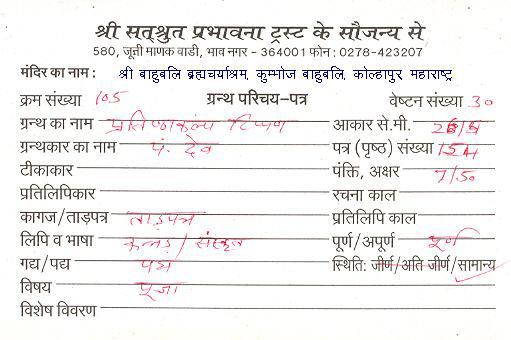 श्री सत्श्रुत प्रभावना ट्रस्ट के सौजन्य से
580, जूनी माणक वाडी, भाव नगर - 364001 फोन : 0278-423207
मंदिर का नाम : श्री बाहुबलि ब्रह्मचर्याश्रम, कुम्भोज बाहुबलि, कोल्हापुर महाराष्ट्र
क्रम संख्या 105 ग्रन्थ परिचय-पत्र वेष्टन संख्या 30
ग्रन्थ का नाम प्रतिष्ठाकल्प टिप्पण आकार से.मी.
ग्रन्थकार का नाम पं. देव पत्र (पृष्ठ) संख्या 154
टीकाकार पंक्ति, अक्षर 7/50
प्रतिलिपिकार रचना काल
कागज/ताड़पत्र ताड़पत्र प्रतिलिपि काल
लिपि व भाषा कन्नड़ / संस्कृत पूर्ण/अपूर्ण पूर्ण
गद्य/पद्य पद्य स्थिति: जीर्ण/अति जीर्ण/सामान्य
विषय पूजा
विशेष विवरण